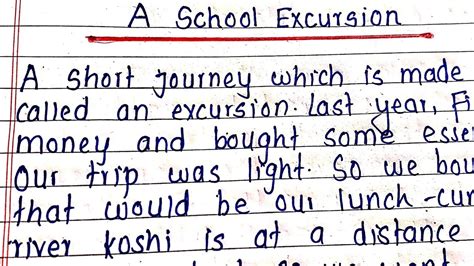 A School Excursion
A short journey which is made
called an excursion. Last year, Fi
money and bought some esse
Our trip was light. So we bou
that would be our lunch-cur
river koshi is at a distance